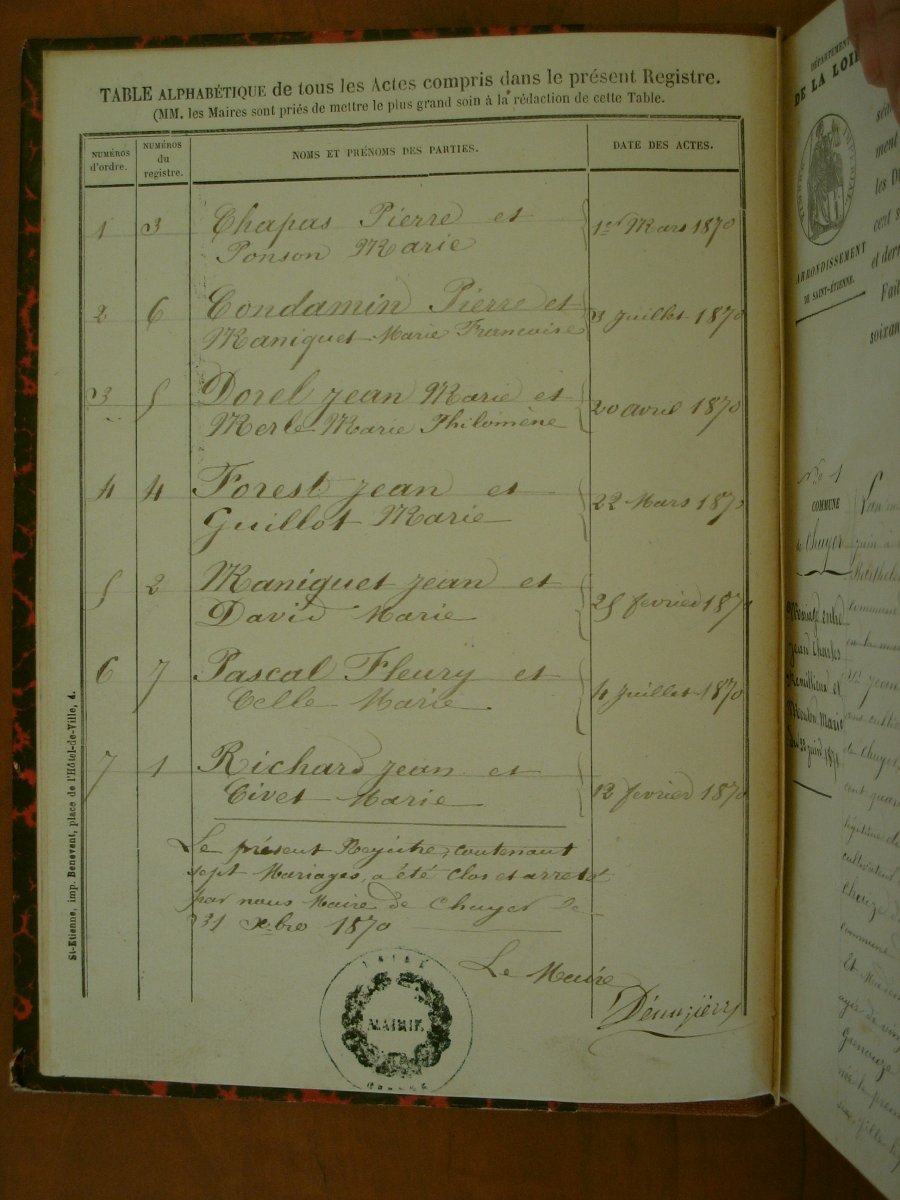 TABLE ALPHABÉTIQUE de tous les Actes compris dans le présent Registre.
(MM. les Maires sont priés de mettre le plus grand soin à la rédaction de cette Table.
NUMÉROS d'ordre.
NUMÉROS du registre.
NOMS ET PRÉNOMS DES PARTIES.
DATE DES ACTES.
1 3 Chapas Pierre et
Ponson Marie
1er Mars 1870
2 6 Condamin Pierre et
Maniquet Marie Francoise
3 Juillet 1870
3 5 Dorel Jean Marie et
Merle Marie Philomène
20 avril 1870
4 4 Forest Jean et
Guillot Marie
22 Mars 1870
5 2 Maniquet Jean et
David Marie
25 fevrier 1870
6 7 Pascal Fleury et
Celle Marie
4 Juillet 1870
7 1 Richard Jean et
Civet Marie
12 fevrier 1870
Le présent Registre, contenant
sept Mariages, a été clos et arreté
par nous Maire de Chuyer le
31 Xbre 1870
Le Maire
MAIRIE
St-Etienne, imp. Benevent, place de l'Hôtel-de-Ville, 4.
DÉPARTEMENT
DE LA LOIRE
ARRONDISSEMENT
DE SAINT-ÉTIENNE.
ment
les
cent
et
soixan
No 1
COMMUNE
de Chuyer
Mariage entre
Jean Charles
et
Marie
du 22 juin 1871